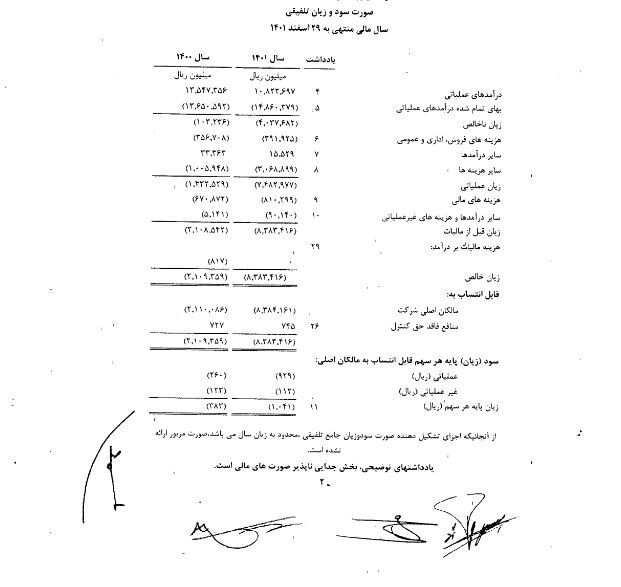 صورت سود و زیان تلفیقی
سال مالی منتهی به ۲۹ اسفند ۱۴۰۱
یادداشت سال ۱۴۰۱ سال ۱۴۰۰
میلیون ریال میلیون ریال
درآمدهای عملیاتی ۴ ۱۰,۸۲۲,۶۹۷ ۱۳,۵۴۷,۳۵۶
بهای تمام شده درآمدهای عملیاتی ۵ (۱۴,۸۶۰,۳۷۹) (۱۳,۶۵۰,۵۹۲)
زیان ناخالص (۴,۰۳۷,۶۸۲) (۱۰۳,۲۳۶)
هزینه های فروش، اداری و عمومی ۶ (۳۹۱,۹۲۵) (۳۵۶,۷۰۸)
سایر درآمدها ۷ ۱۵,۵۲۹ ۳۳,۳۶۳
سایر هزینه ها ۸ (۳,۰۶۸,۸۹۹) (۱,۰۰۵,۹۴۸)
زیان عملیاتی (۷,۴۸۲,۹۷۷) (۱,۴۳۲,۵۲۹)
هزینه های مالی ۹ (۸۱۰,۲۹۹) (۶۷۰,۸۷۲)
سایر درآمدها و هزینه های غیرعملیاتی ۱۰ (۹۰,۱۴۰) (۵,۱۴۱)
زیان قبل از مالیات (۸,۳۸۳,۴۱۶) (۲,۱۰۸,۵۴۲)
هزینه مالیات بر درآمد: ۲۹
(۸۱۷)
زیان خالص (۸,۳۸۳,۴۱۶) (۲,۱۰۹,۳۵۹)
قابل انتساب به:
مالکان اصلی شرکت (۸,۳۸۴,۱۶۱) (۲,۱۱۰,۰۸۶)
منافع فاقد حق کنترل ۲۶ ۷۴۵ ۷۲۷
(۸,۳۸۳,۴۱۶) (۲,۱۰۹,۳۵۹)
سود (زیان) پایه هر سهم قابل انتساب به مالکان اصلی:
عملیاتی (ریال) (۹۲۹) (۲۶۰)
غیر عملیاتی (ریال) (۱۱۲) (۱۲۳)
زیان پایه هر سهم (ریال) ۱۱ (۱,۰۴۱) (۳۸۳)
از آنجائیکه اجزای تشکیل دهنده صورت سودوزیان جامع تلفیقی ،محدود به زیان سال می باشد،صورت مزبور ارائه
نشده است.
یادداشتهای توضیحی، بخش جدایی ناپذیر صورت های مالی است.
۲